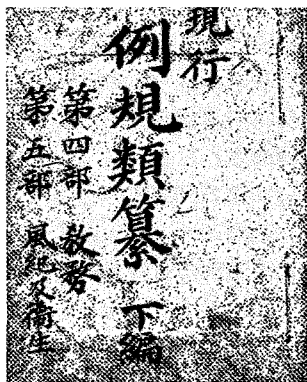 現行
例規類纂 下編
第四部 教務
第五部 風紀及衞生